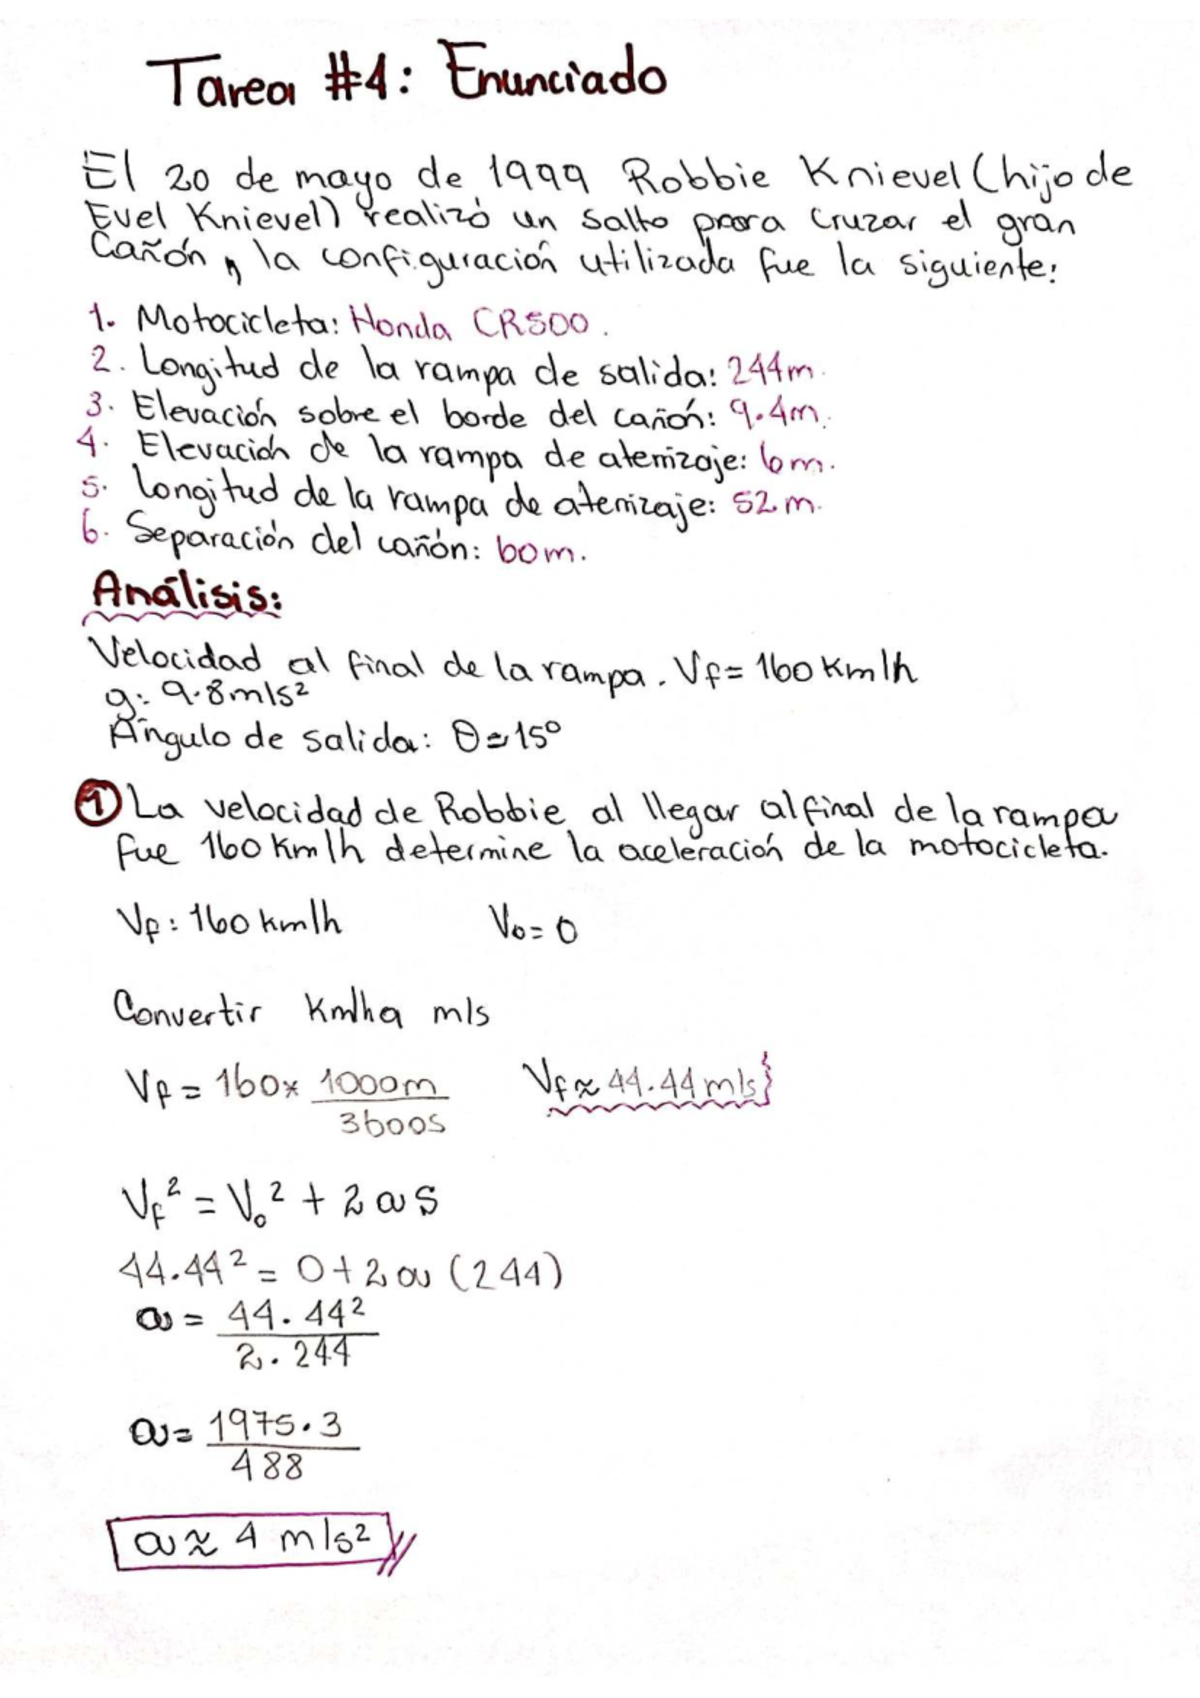 Tarea #1: Enunciado
El 20 de mayo de 1999 Robbie Knievel (hijo de
Evel Knievel) realizó un salto para cruzar el gran
Cañón, la configuración utilizada fue la siguiente:
1. Motocicleta: Honda CR500.
2. Longitud de la rampa de salida: 244m.
3. Elevación sobre el borde del cañón: 9.4m.
4. Elevación de la rampa de aterrizaje: 6m.
5. longitud de la rampa de aterrizaje: 52m.
6. Separación del cañón: 60m.
Análisis:
Velocidad al final de la rampa. Vf= 160 Km/h
g: 9.8m/s²
Ángulo de salida: θ=15°
① La velocidad de Robbie al llegar al final de la rampa
fue 160 Km/h determine la aceleración de la motocicleta.
Vf: 160 km/h V₀= 0
Convertir Km/h a m/s
Vf = 160× 1000m / 3600s Vf≈ 44.44 m/s}
Vf² = V₀² + 2 a s
44.44² = 0 + 2 a (244)
a = 44.44² / 2.244
a = 1975.3 / 488
a ≈ 4 m/s² //